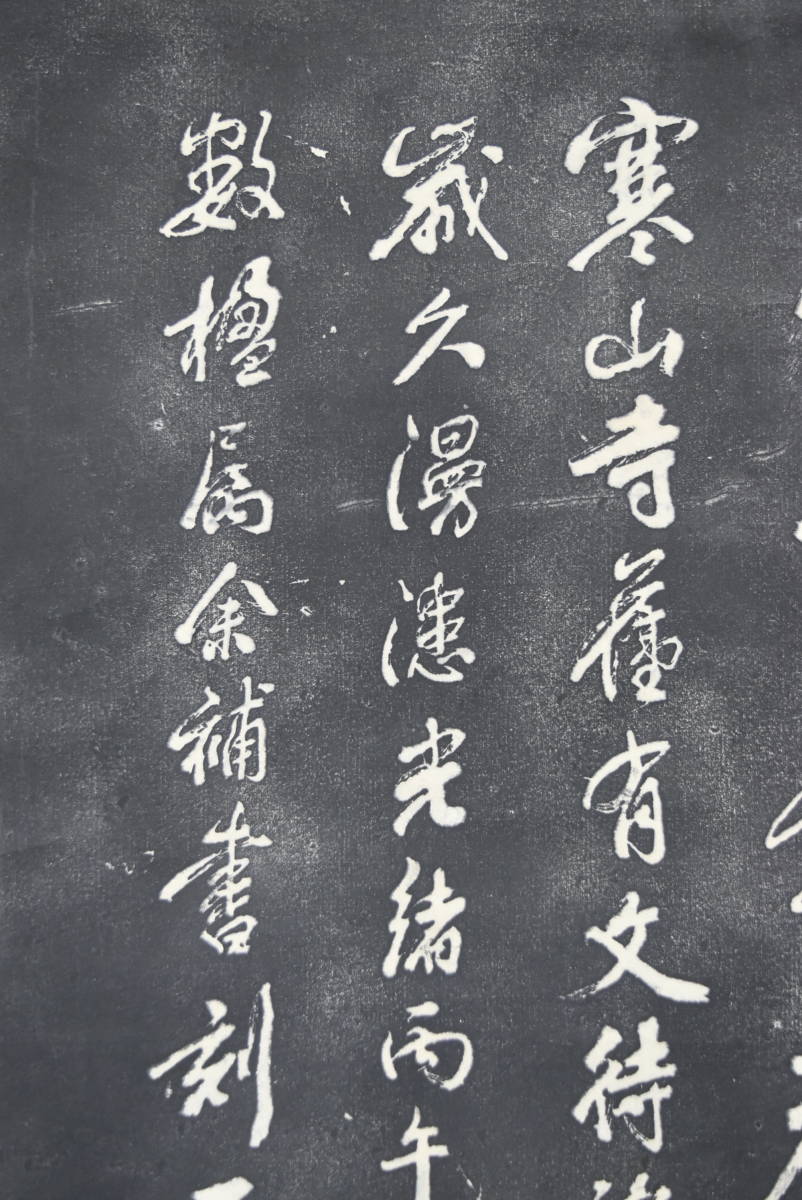 寒山寺舊有文待
歲久漫漶光緒丙午
數楹屬余補書刻